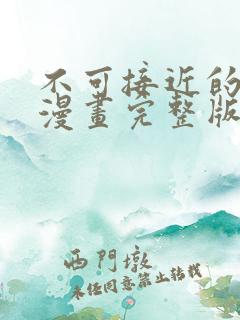 不可接近的
漫畫完整版
西門墩
未经同意禁止转载